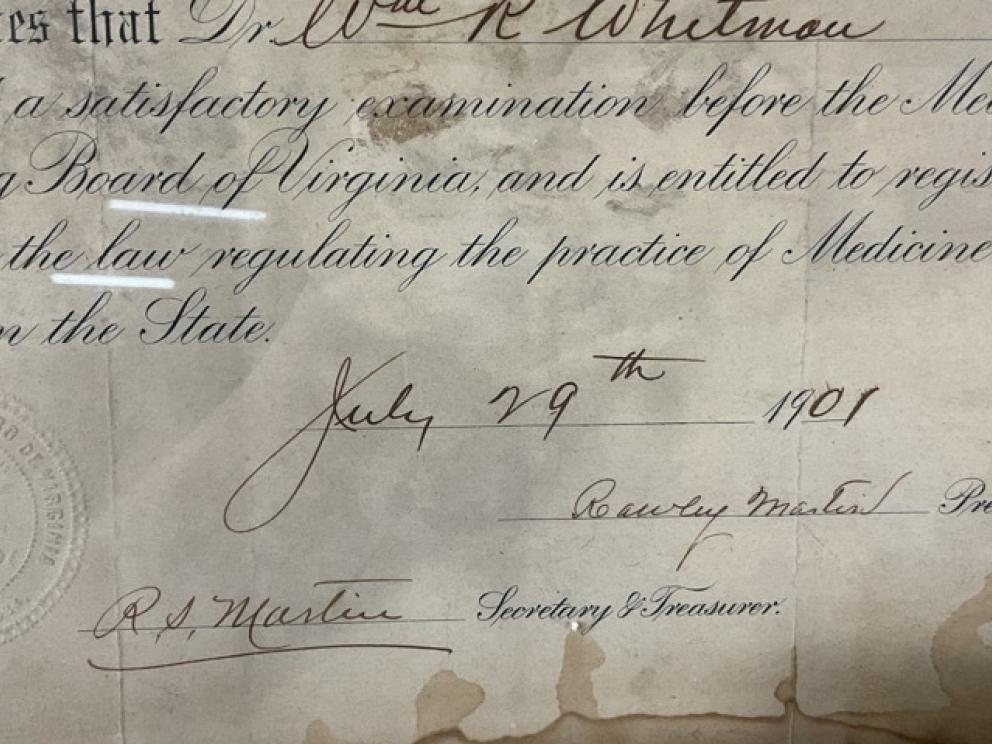 es that Dr. Wm R Whitman
a satisfactory examination before the Me
g Board of Virginia, and is entitled to regis
the law regulating the practice of Medicine
n the State.
July 29th 1901
Rawley Martin Pre
R. S. Martin Secretary & Treasurer.